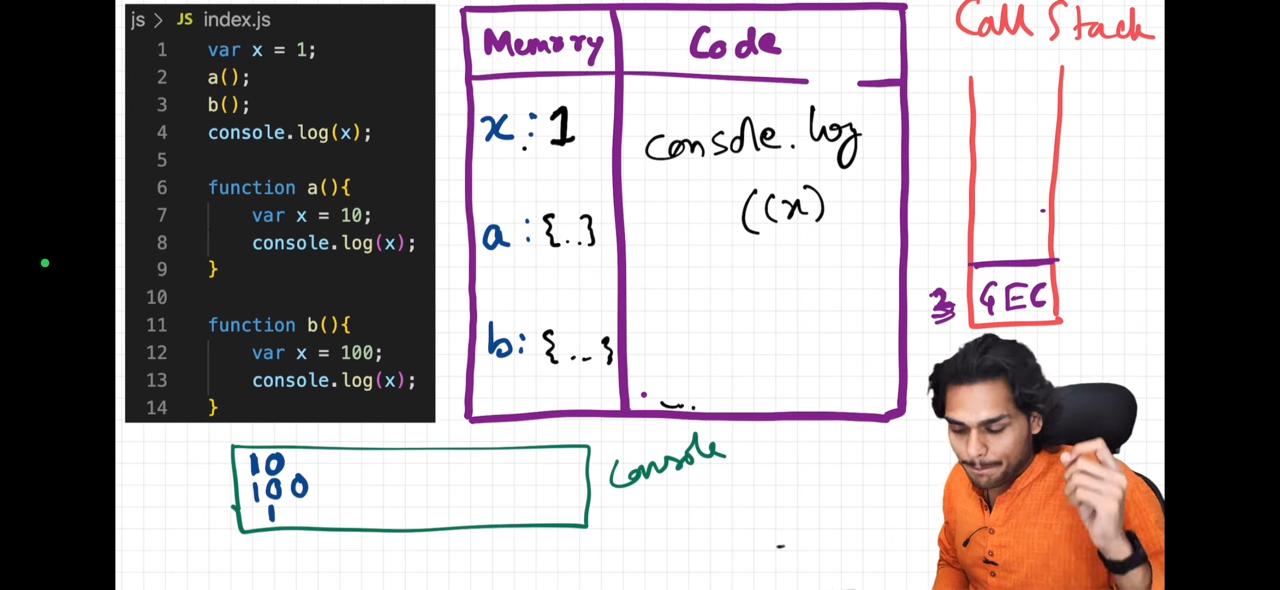 js > JS index.js
1 var x = 1;
2 a();
3 b();
4 console.log(x);
5
6 function a(){
7 var x = 10;
8 console.log(x);
9 }
10
11 function b(){
12 var x = 100;
13 console.log(x);
14 }
Memory Code
x : 1
a : {..}
b: {...}
console.log
((x)
Call Stack
GEC
10
100
1
Console